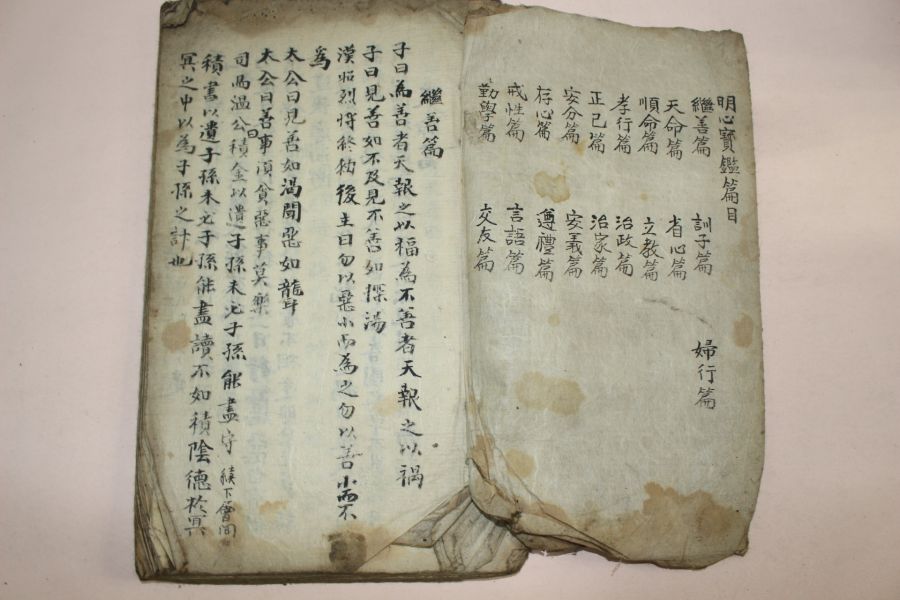 明心寶鑑篇目
繼善篇 訓子篇 婦行篇
天命篇 省心篇
順命篇 立教篇
孝行篇 治政篇
正己篇 治家篇
安分篇 安義篇
存心篇 遵禮篇
戒性篇 言語篇
勤學篇 交友篇
繼善篇
子曰為善者天報之以福為不善者天報之以禍
子曰見善如不及見不善如探湯
漢昭烈將終勑後主曰勿以惡小而為之勿以善小而不
為
太公曰見善如渴聞惡如聾
太公曰善事須貪惡事莫樂
司馬溫公曰積金以遺子孫未必子孫能盡守
積書以遺子孫未必子孫能盡讀不如積陰德於冥
冥之中以為子孫之計也